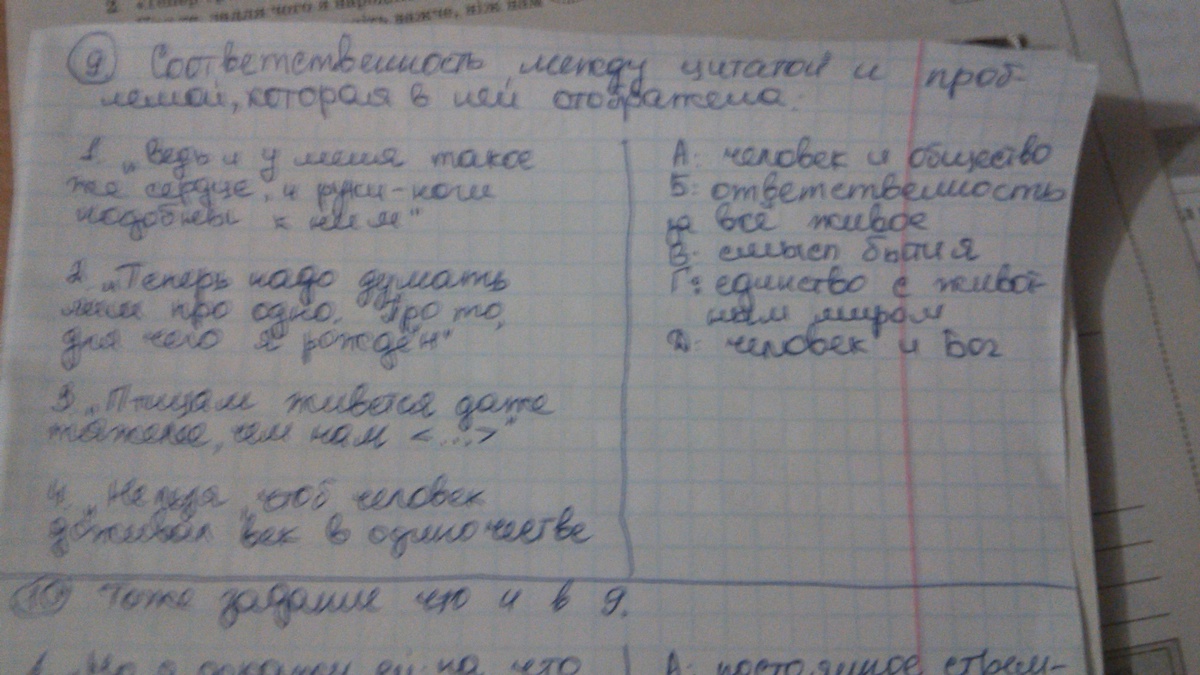 2 «Тепер
ніж нам
9 Соответственность между цитатой и проб-
лемой, которая в ней отображена:
1. „Ведь и у меня такое
же сердце, и руки-ноги
подобны к ним"
2. „Теперь надо думать
лиш про одно. Про то,
для чего я рождён"
3. „Птицам живётся даже
тяжелее, чем нам <...>"
4. „Нельзя, чтоб человек
доживал век в одиночестве
А: человек и общество
Б: ответственность
за всё живое
В: смысл бытия
Г: единство с живот-
ным миром
Д: человек и Бог
10 Тоже задание что и в 9.
что
А: постоянное стрем-